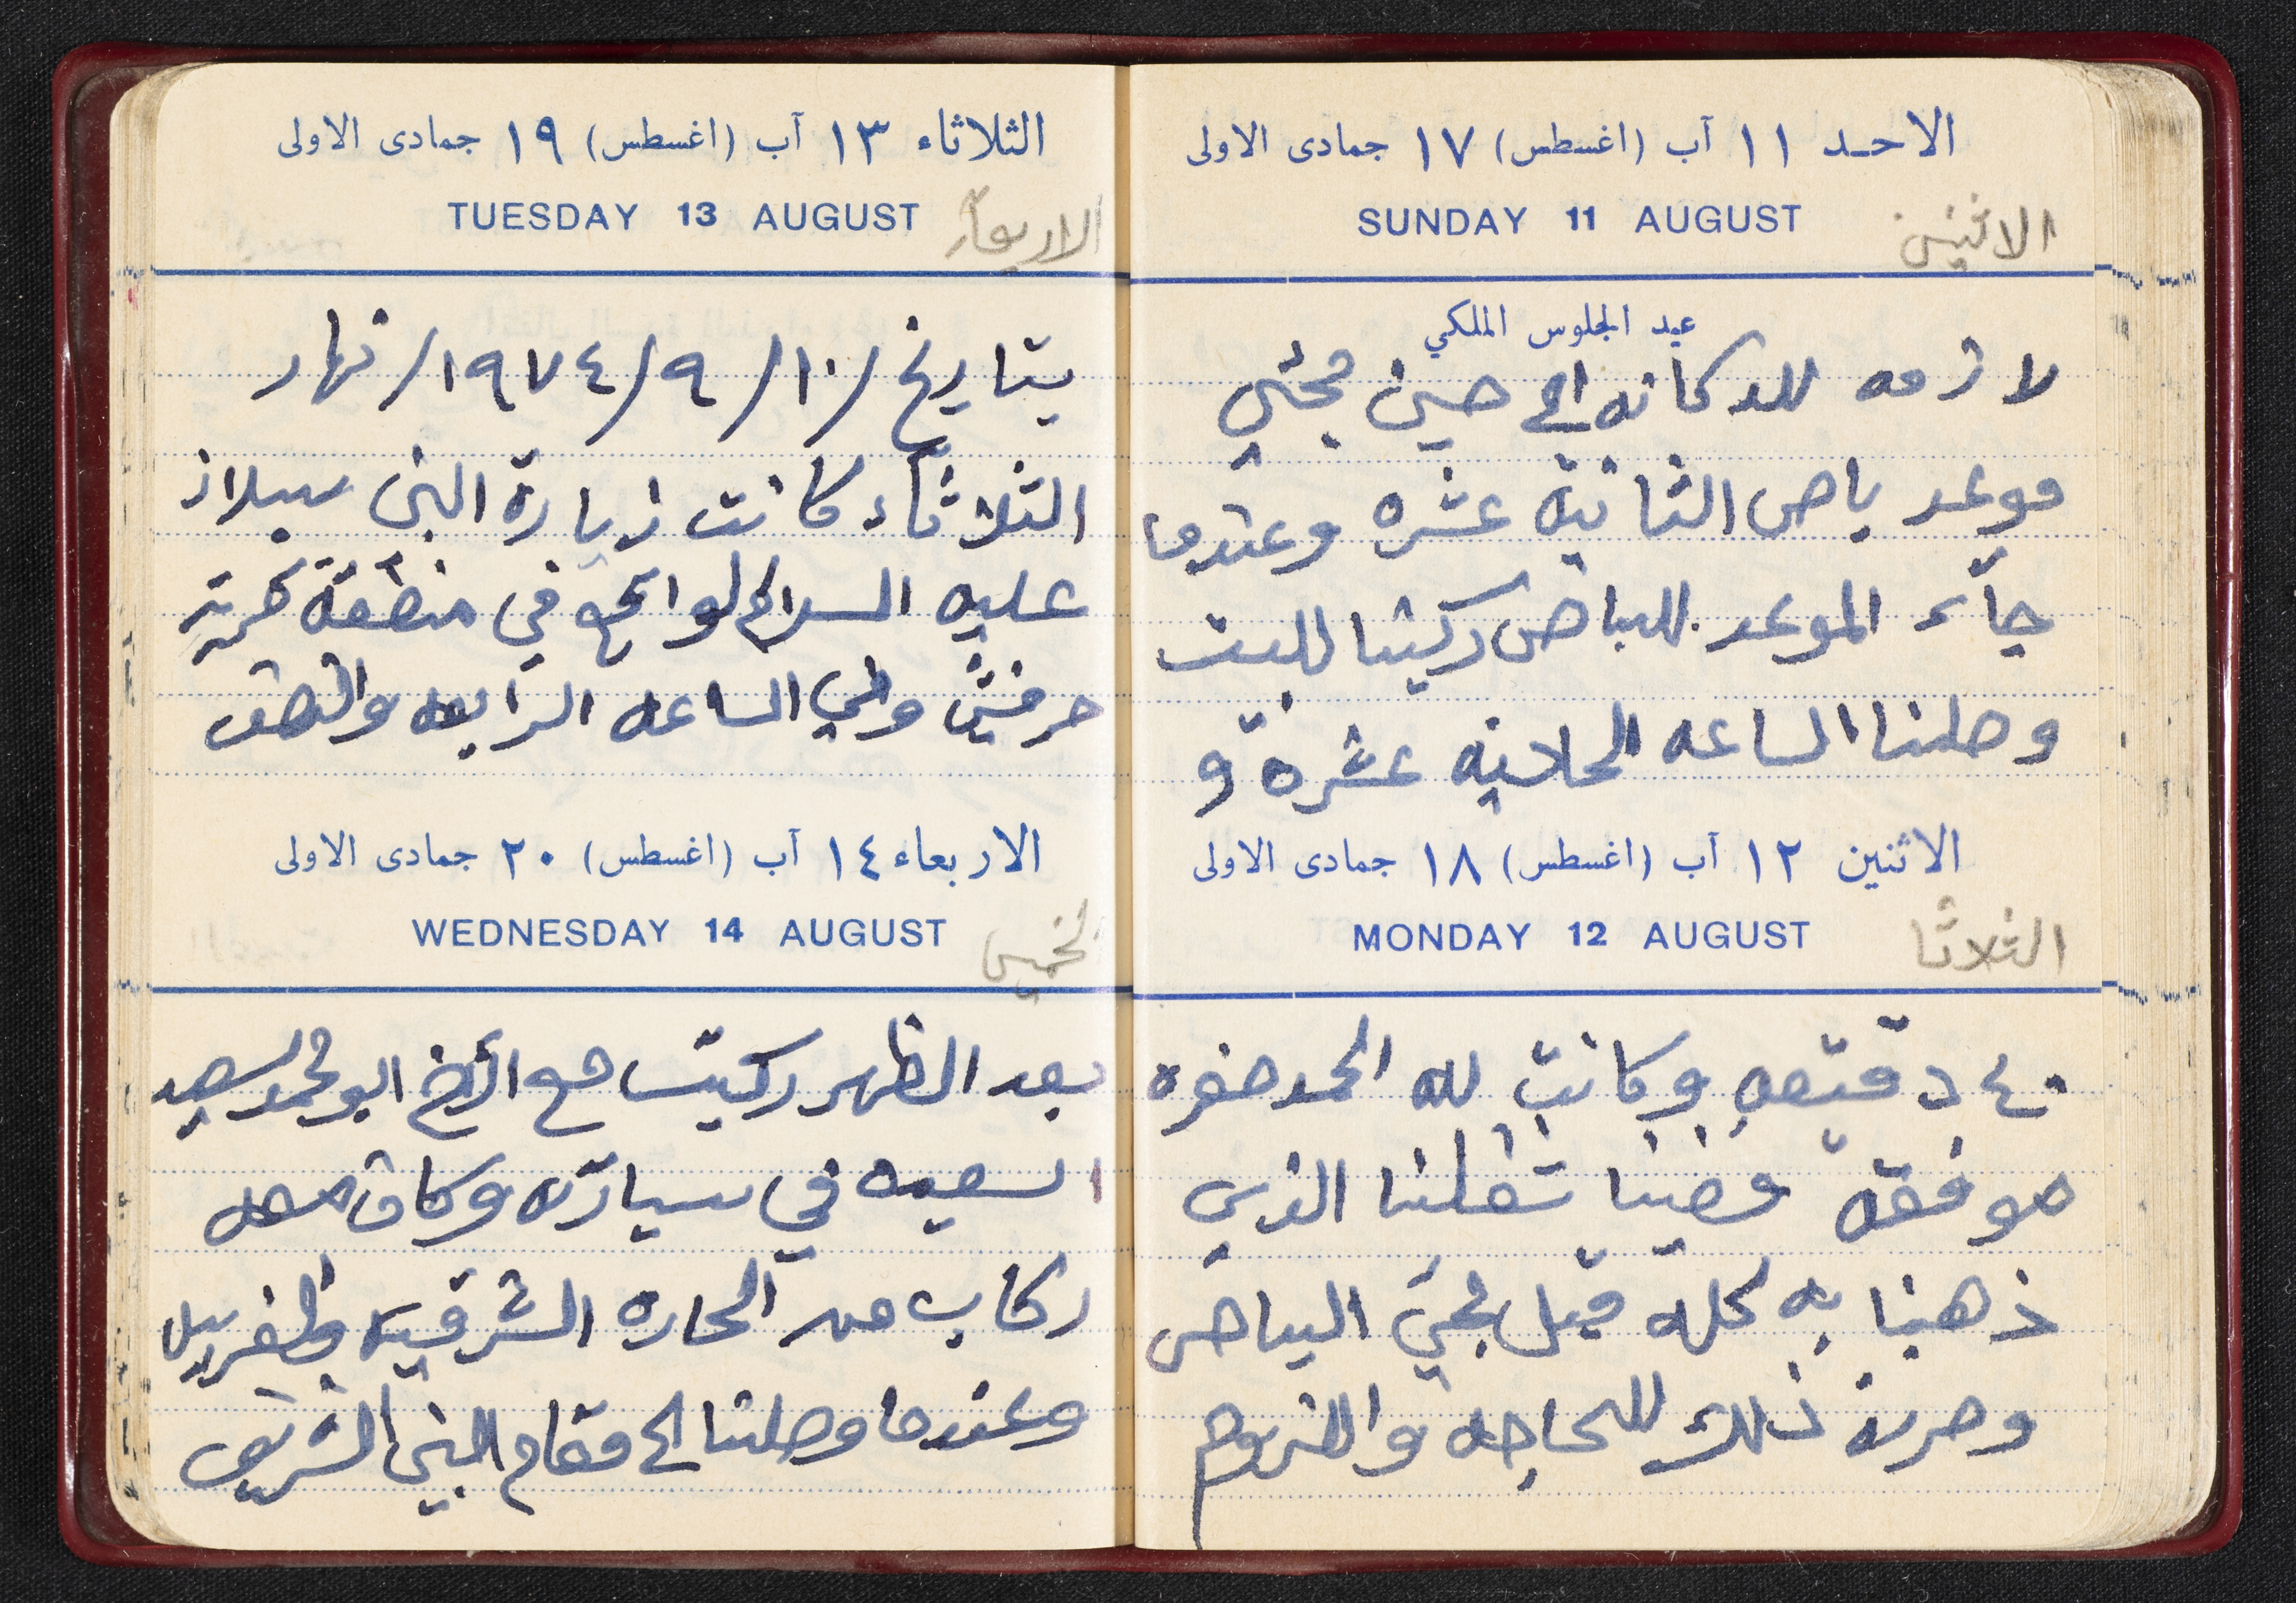 الاحد ١١ آب (اغسطس) ١٧ جمادى الاولى
SUNDAY 11 AUGUST
الاثنين
عيد الجلوس الملكي
لازمه للدكانه الى حين مجئي
موعد باص الثانية عشره وعندما
جآء الموعد للباص ركبنا للبيت
وصلنا الساعه الحاديه عشرة و
الاثنين ١٢ آب (اغسطس) ١٨ جمادى الاولى
MONDAY 12 AUGUST
الثلاثا
٤٠ دقيقه وكانت لله الحمد سفره
موفقة قضينا شغلنا الذي
ذهبنا به كله قبل مجئ الباص
وصرنا ذلك للحاجه واللزوم
الثلاثاء ١٣ آب (اغسطس) ١٩ جمادى الاولى
TUESDAY 13 AUGUST
الاربعآء
بتاريخ /١٠/٩/١٩٧٤/ نهار
الثلاثآء كانت زيارة النبي سبلان
عليه السلام الواقع في منطقة قرية
حرفيش وفي الساعه الرابعه والنصف
الاربعاء ١٤ آب (اغسطس) ٢٠ جمادى الاولى
WEDNESDAY 14 AUGUST
الخميس
بعد الظهر ركبت مع الأخ ابو محمد سعيد
في سيارته وكان معه
ركاب من الحاره الشرقيه
وعندما وصلنا الى مقام النبي الشريف